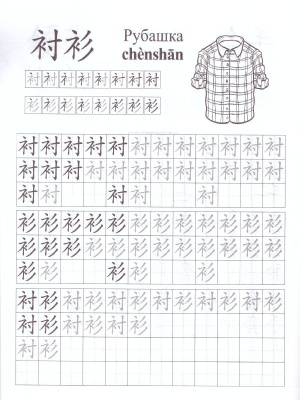 衬衫
Рубашка
chènshān
衬衬衬衬衬衬衬衬
衫衫衫衫衫衫衫衫
衬衬衬衬衬衬衬衬衬衬衬衬
衬衬衬衬衬衬衬衬衬衬衬衬
衬衬 衬衬 衬
衫衫衫衫衫衫衫衫衫衫衫衫
衫衫衫衫衫衫衫衫衫衫衫衫
衫衫 衫衫 衫
衬衫衬衫衬衫衬衫衬衫衬衫
衬衫衬衫衬衫
衬衫